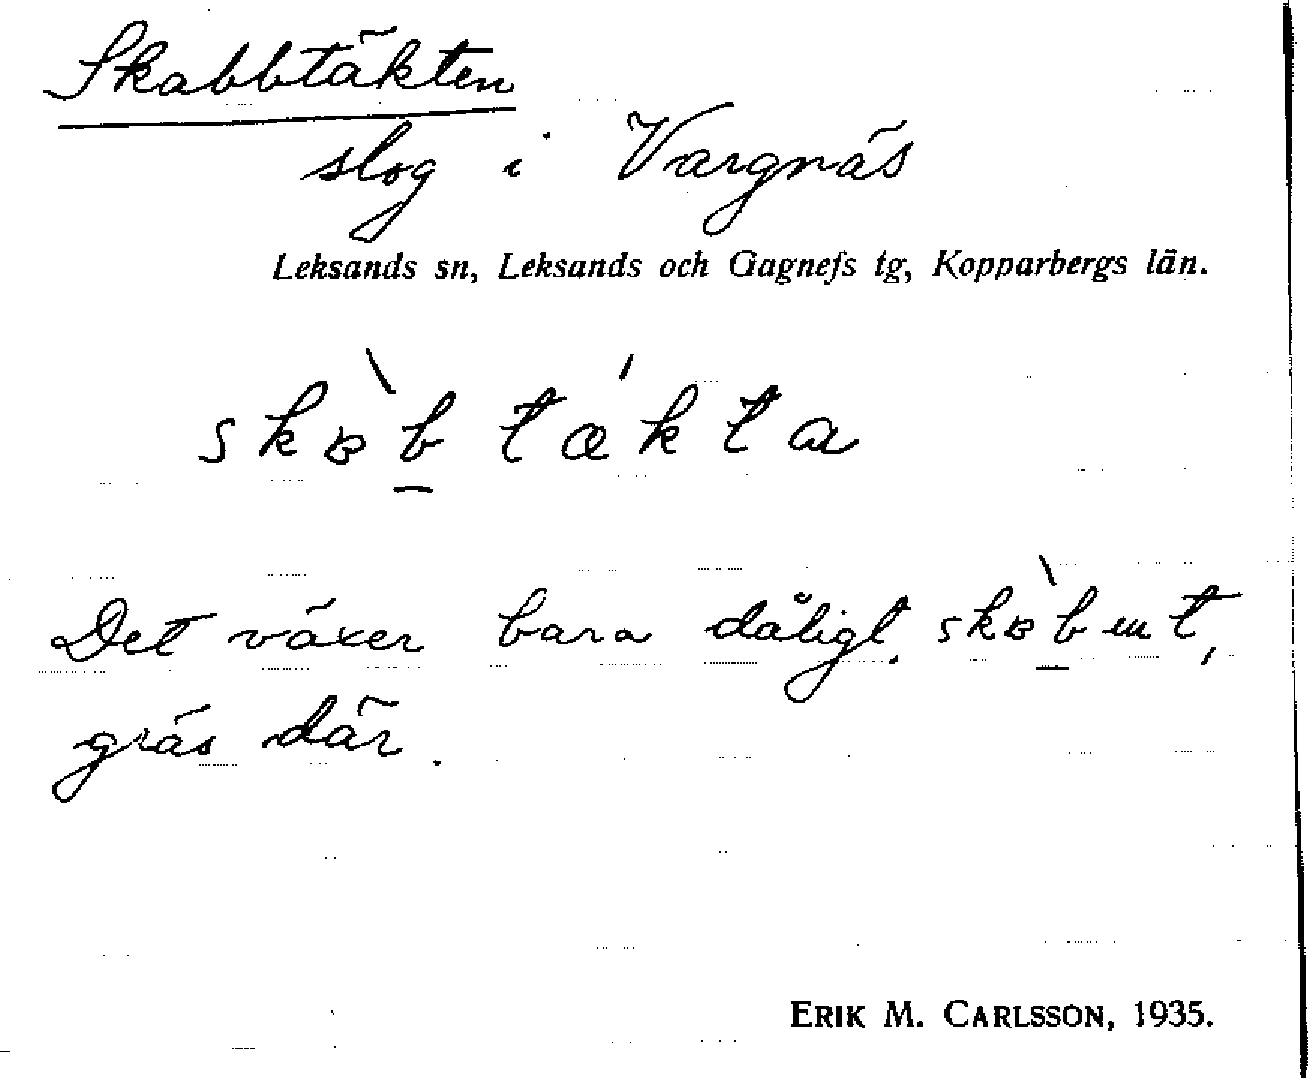 Skabbtäkten
slog i Vargnäs
Leksands sn, Leksands och Gagnefs tg, Kopparbergs län.
skɒ̀b̲ tǽkta
Det växer bara dåligt, skɒ̀b̲ut,
gräs där.
ERIK M. CARLSSON, 1935.